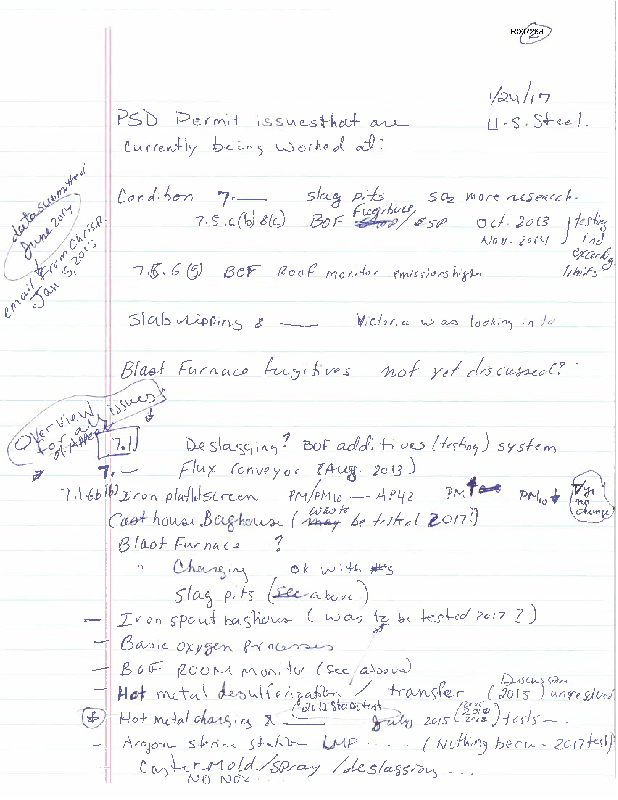 1/24/17
PSD Permit issues that are U.S. Steel.
currently being worked at:
data submitted
June 2014
email from Chris R.
Jan 5, 2015
Condition 7. — slag pits SO2 more research.
Fugitive
BOF /ESP Oct. 2013 testing
Nov. 2014 limits
BOF Roof monitor emissions high
& — Victoria was looking into
Blast Furnace fugitives not yet discussed?
Overview
for all issues
7.1 Deslagging? BOF additives (testing) system
7. — Flux conveyor (Aug. 2013)
Iron screen PM/PM10 — AP42 PM PM10 no change
was to
Cast house Baghouse (may be tested 2017?)
Blast Furnace ?
" Charging ok with
Slag pits (see above)
— Iron spout baghouse (was to be tested 2017?)
— Basic oxygen processes
— BOF ROOM monitor (see above)
Discussion
— Hot metal desulferization / transfer (2015)
2012 Stack test
Hot metal charging & — July 2015 tests —
— Argon station LMF .... (Nothing been - 2017 test)
Caster mold/spray/deslagging ...
NO NOx...